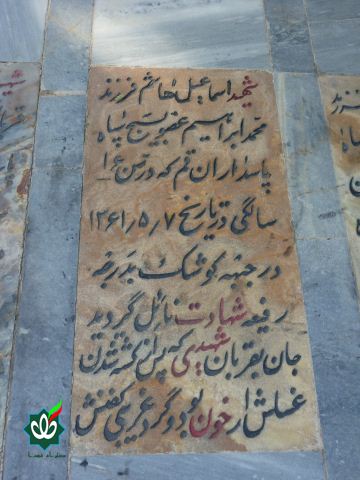 شهید اسماعیل خاتم فرزند
محمد ابراهیم عضو بسیج سپاه
پاسداران قم که در سن ۱۶
سالگی در تاریخ ۱۳۶۱٫۵٫۷
در جبهه کوشک بدرجه
رفیعه شهادت نائل گردید
جان بقربان شهیدی که پس از کشته شدن
غسلش از خون بود و گرد غریبی کفنش
گلزار شهدا